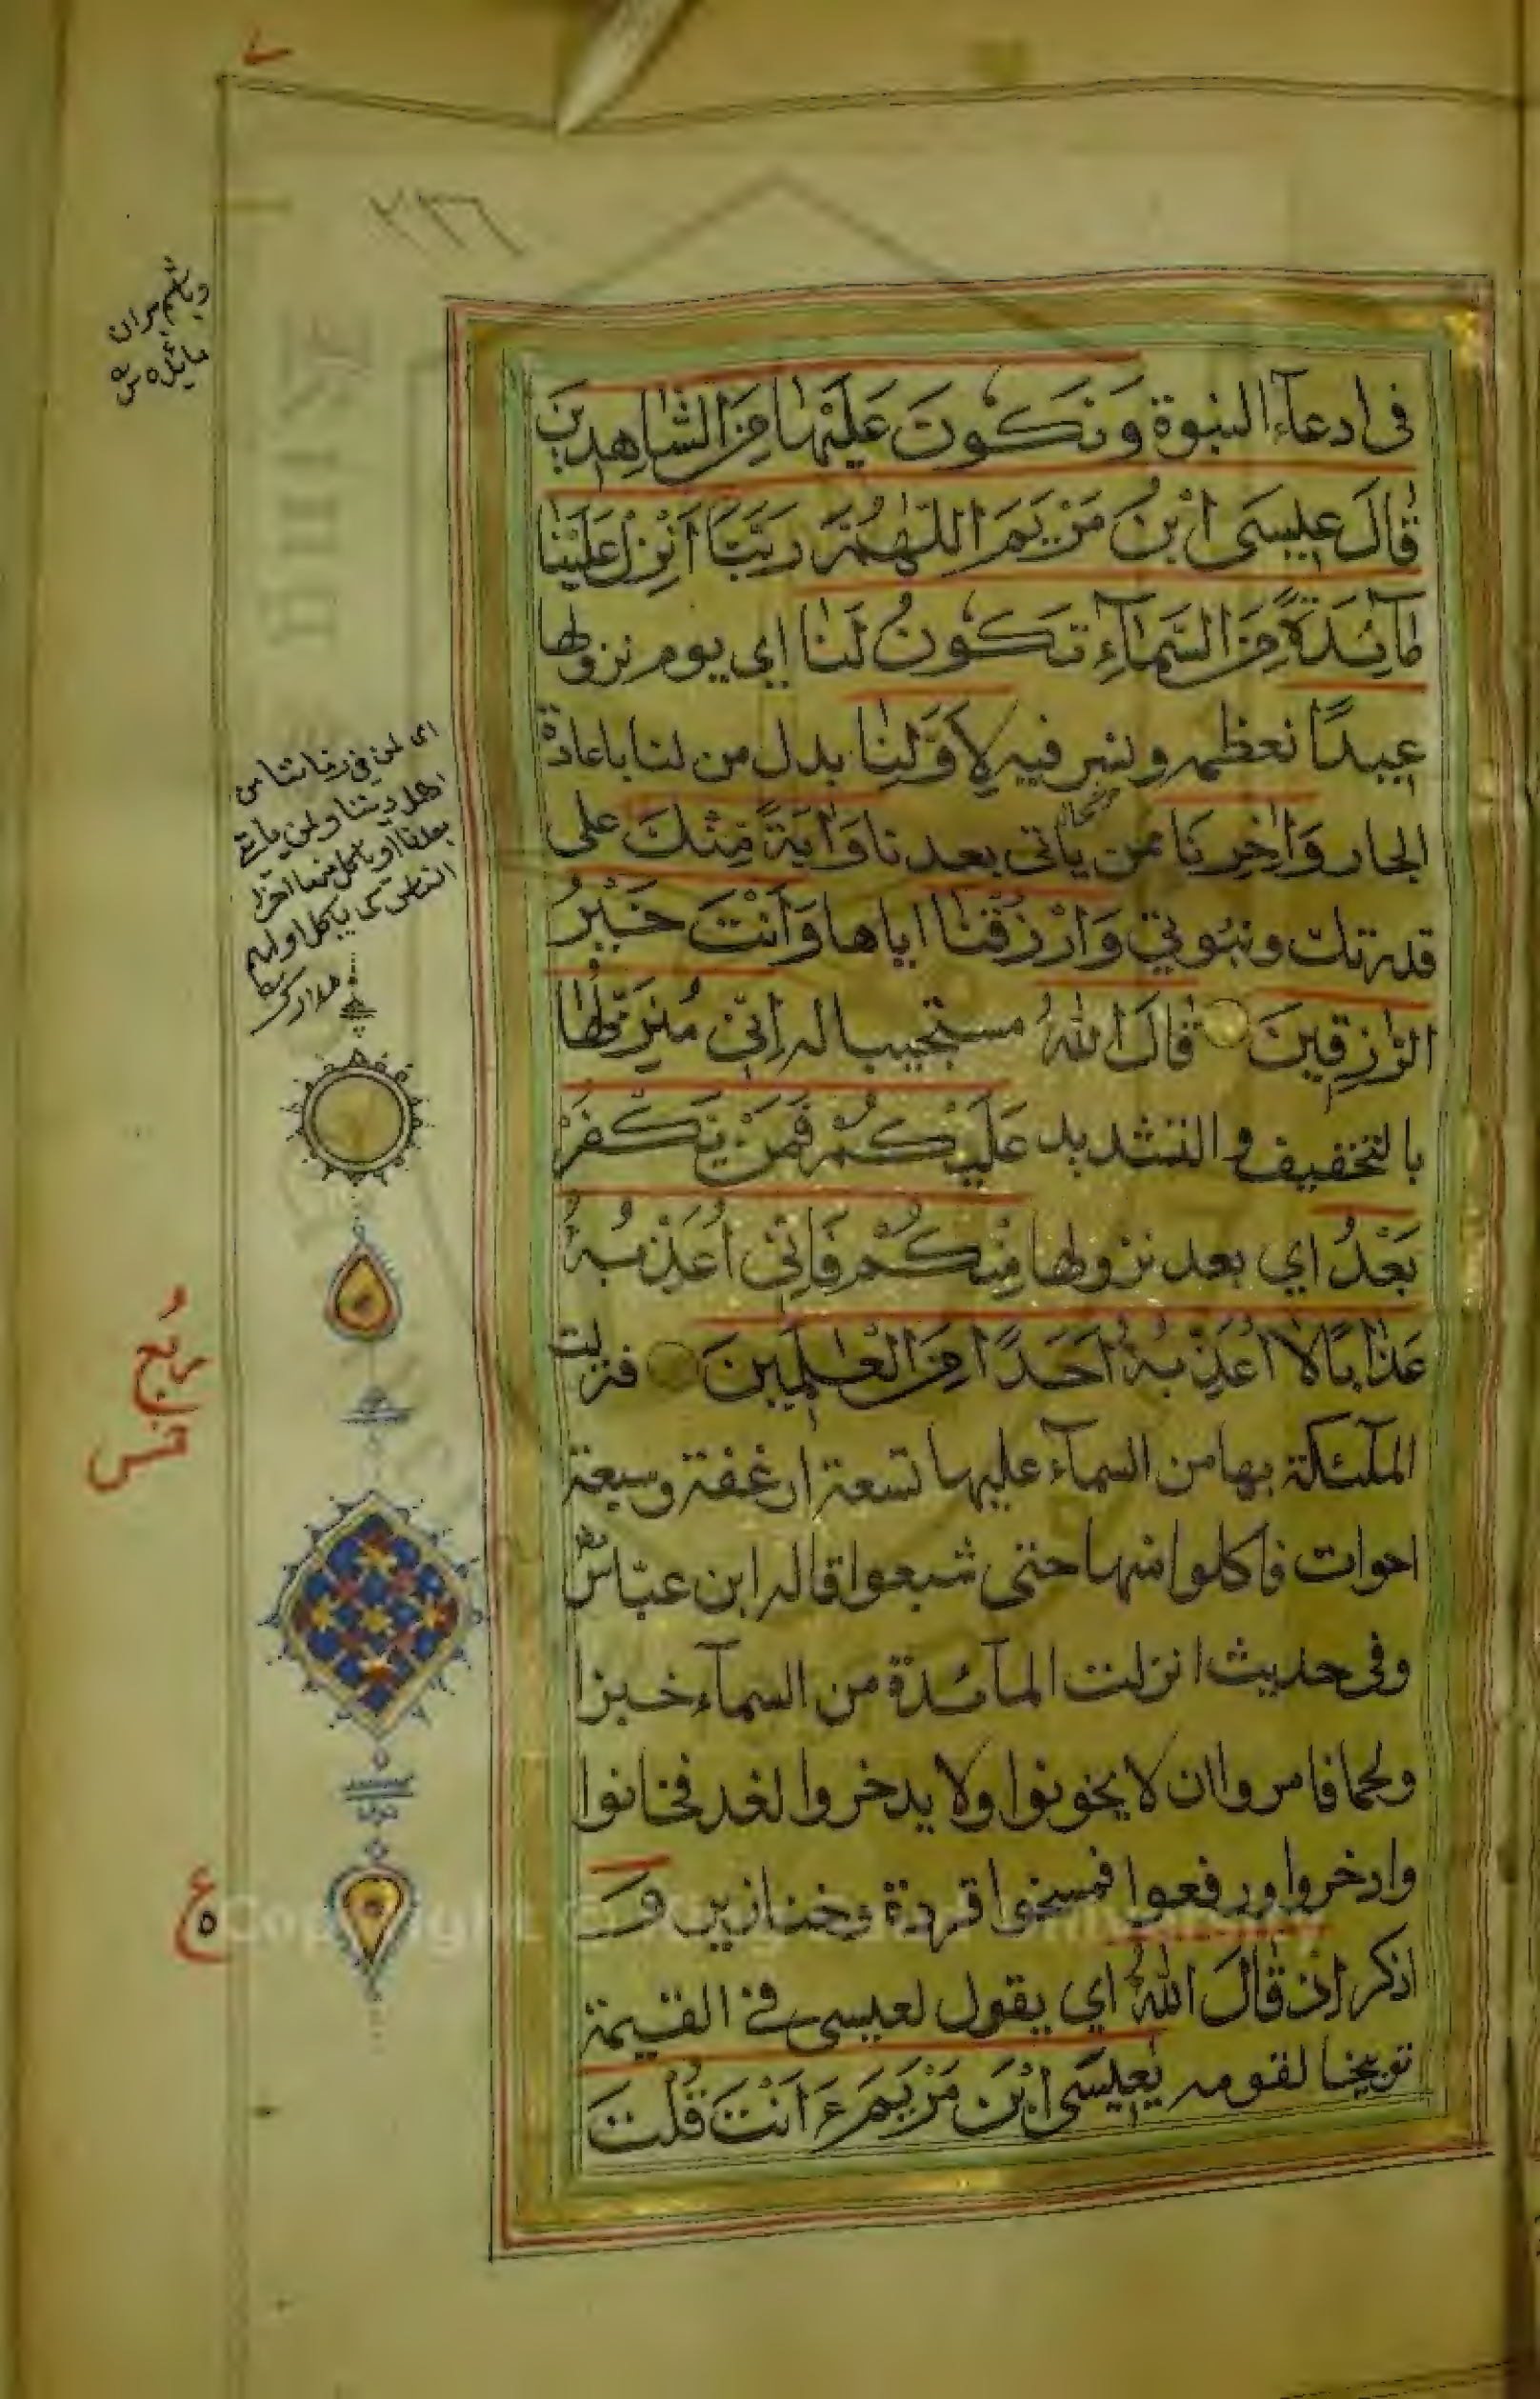 ٢٣٦
في ادعاء النبوة وَنَكُونَ عَلَيْهَا مِنَ الشَّاهِدِينَ
قَالَ عِيسَى ابْنُ مَرْيَمَ اللّٰهُمَّ رَبَّنَا أَنْزِلْ عَلَيْنَا
مَآئِدَةً مِنَ السَّمَآءِ تَكُونُ لَنَا اي يوم نزولها
عِيدًا نعظمه ونسر فيه لِأَوَّلِنَا بدل من لنا باعادة
الجار وَاٰخِرِنَا ممن ياتي بعدنا وَاٰيَةً مِنْكَ على
قدرتك ونبوتي وَارْزُقْنَا اياها وَأَنْتَ خَيْرُ
الرّٰزِقِينَ قَالَ اللّٰهُ مستجيبا له اِنِّي مُنَزِّلُهَا
بالتخفيف والتشديد عَلَيْكُمْ فَمَنْ يَكْفُرْ
بَعْدُ اي بعد نزولها مِنْكُمْ فَاِنِّي اُعَذِّبُهُ
عَذَابًا لَا اُعَذِّبُهُ اَحَدًا مِنَ الْعٰلَمِينَ فنزلت
الملٓئكة بها من السمآء عليها تسعة ارغفة وسبعة
احوات فاكلوا منها حتى شبعوا قاله ابن عبّاس
وفي حديث انزلت المآئدة من السمآء خبزا
ولحما فامروا ان لا يخونوا ولا يدخروا لغد فخانوا
وادخروا ورفعوا فمسخوا قردة وخنازير وَ
اذكر اِذْ قَالَ اللّٰهُ اي يقول لعيسى في القيمة
توبيخا لقومه يٰعِيسَى ابْنَ مَرْيَمَ ءَاَنْتَ قُلْتَ
اى لمن في زماننا من
اهل ديننا ولمن ياتي
بعدنا او ياكل منها آخر
الناس كما ياكل اولهم
مدارك
ربع
ع
٥